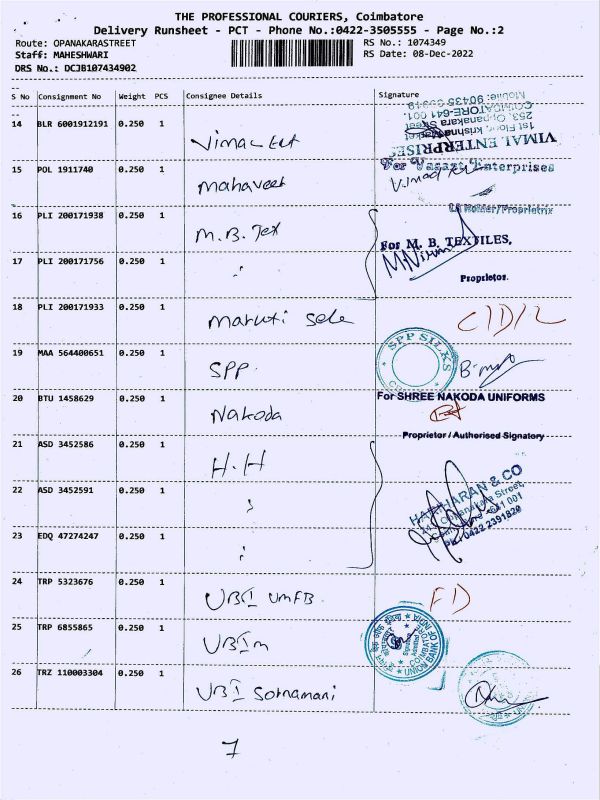 THE PROFESSIONAL COURIERS, Coimbatore
Delivery Runsheet - PCT - Phone No.:0422-3505555 - Page No.:2
Route: OPANAKARASTREET
RS No.: 1074349
Staff: MAHESHWARI
RS Date: 08-Dec-2022
DRS No.: DCJB107434902
S No Consignment No Weight PCS Consignee Details Signature
14 BLR 6001912191 0.250 1 Vimal Ent
VIMAL ENTERPRISES
1st Floor, Krishna
253, Oppanakara Street
COIMBATORE-641 001.
15 POL 1911740 0.250 1 Mahaveer
For Vasant Enterprises
16 PLI 200171938 0.250 1 M.B. Tex
For M. B. TEXTILES,
17 PLI 200171756 0.250 1 "
Proprietor.
18 PLI 200171933 0.250 1 Maruti Sele
19 MAA 564400651 0.250 1 SPP.
SPP SILKS
20 BTU 1458629 0.250 1 Nakoda
For SHREE NAKODA UNIFORMS
Proprietor / Authorised Signatory
21 ASD 3452586 0.250 1 H.H
HARIHARAN & CO
Oppanakara Street,
641 001
Ph: 0422 2391820
22 ASD 3452591 0.250 1 "
23 EDQ 47274247 0.250 1 "
24 TRP 5323676 0.250 1 UBI UMFB
FD
25 TRP 6855865 0.250 1 UBI m
UNION BANK OF INDIA
COIMBATORE
26 TRZ 110003304 0.250 1 UBI Sornamani
7